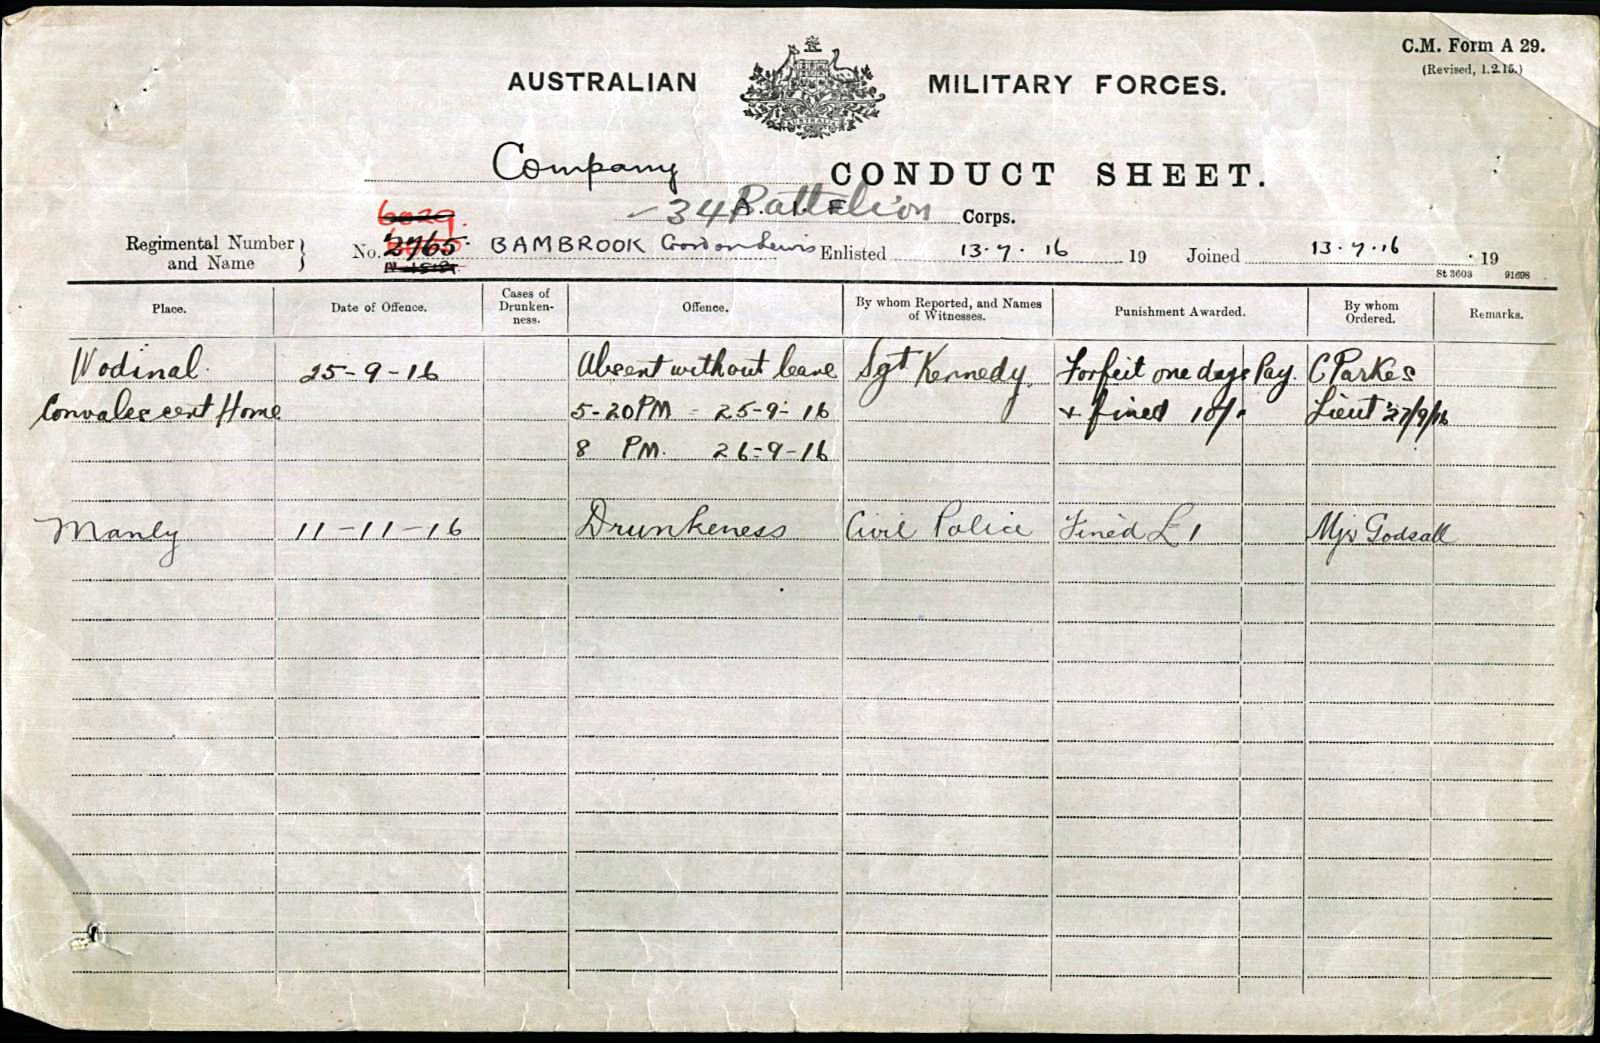 C.M. Form A 29.
(Revised, 1.2.15.)
AUSTRALIAN MILITARY FORCES.
AUSTRALIA
Company CONDUCT SHEET.
34 Battalion A. I. F. Corps.
6029.
Regimental Number and Name } No. 2765 BAMBROOK Gordon Lewis Enlisted 13.7.16 19 Joined 13.7.16 19
St 3603 91698
Place. Date of Offence. Cases of Drunken-ness. Offence. By whom Reported, and Names of Witnesses. Punishment Awarded. By whom Ordered. Remarks.
Wodinal 25-9-16 Absent without leave Sgt Kennedy. Forfeit one days Pay. C Parkes
Convalescent Home 5-20 PM - 25-9-16 + fined 10/- Lieut 27/9/16
8 PM. 26-9-16
Manly 11-11-16 Drunkeness Civil Police Fined £1 Mjr Godsall